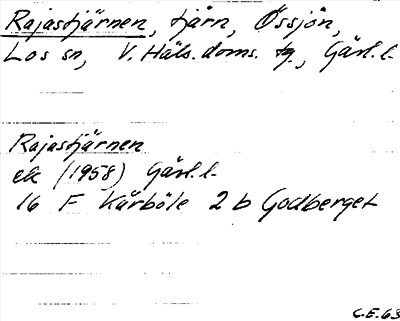 Rajastjärnen, tjärn, Össjön,
Los sn, V. Häls. doms. tg., Gävl. l.
Rajastjärnen
ek (1958) Gävl. l.
16 F Kårböle 2 b Godberget
C.E. 63